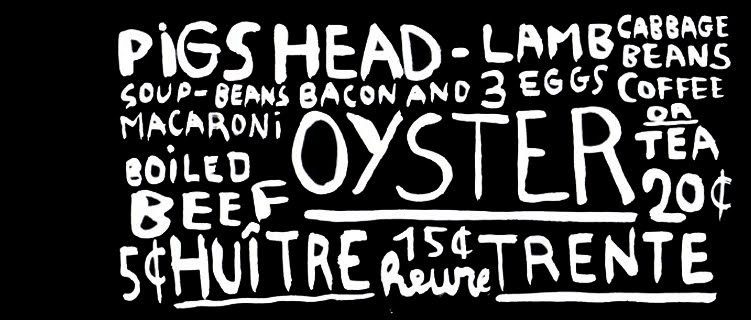 PiGS HEAD - LAMB CABBAGE
BEANS
SOUP - BEANS BACON AND 3 EGGS COFFEE
MACARONi OYSTER OR
TEA
BOiLED
BEEF 20¢
5¢ HUÎTRE 15¢ heure TRENTE